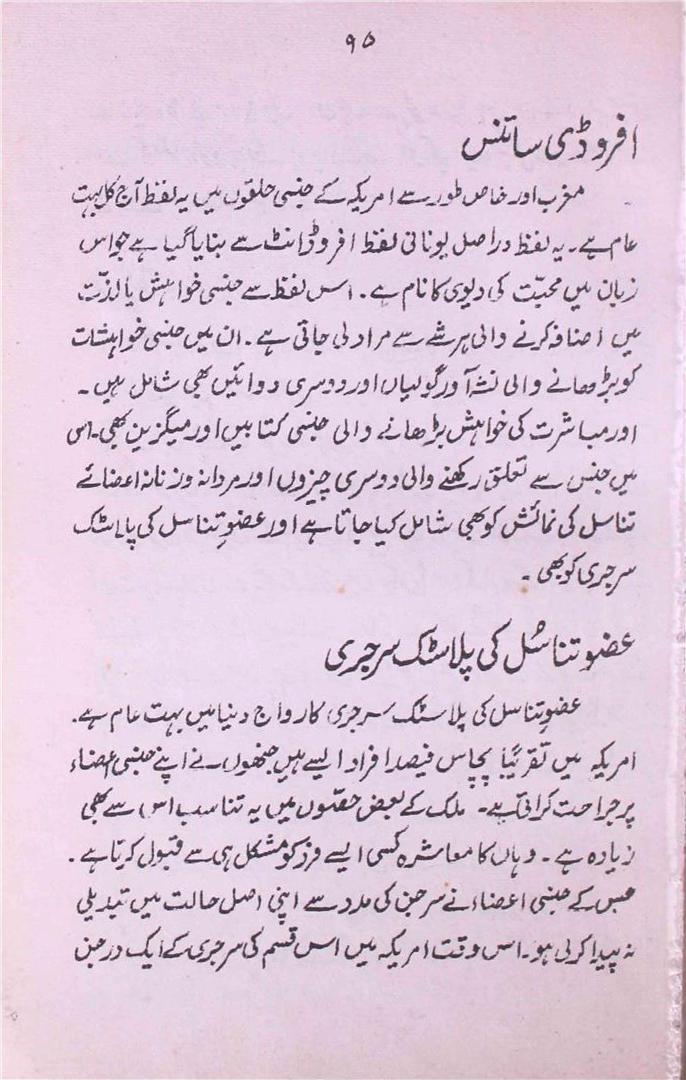 ۹۵
افروڈی ساتنس
مغرب اور خاص طور سے امریکہ کے جنسی حلقوں میں یہ لفظ آج کل بہت
عام ہے۔ یہ لفظ دراصل یونانی لفظ افروڈائٹ سے بنایا گیا ہے جو اس
زبان میں محبّت کی دیوی کا نام ہے۔ اس لفظ سے جنسی خواہش یا لذّت
میں اضافہ کرنے والی ہر شے سے مراد لی جاتی ہے۔ ان میں جنسی خواہشات
کو بڑھانے والی نشہ آور گولیاں اور دوسری دوائیں بھی شامل ہیں۔
اور مباشرت کی خواہش بڑھانے والی جنسی کتابیں اور میگزین بھی۔ اس
میں جنس سے تعلق رکھنے والی دوسری چیزوں اور مردانہ و زنانہ اعضائے
تناسل کی نمائش کو بھی شامل کیا جاتا ہے اور عضوِ تناسل کی پلاسٹک
سرجری کو بھی۔
عضو تناسُل کی پلاسٹک سرجری
عضوِ تناسل کی پلاسٹک سرجری کا رواج دنیا میں بہت عام ہے۔
امریکہ میں تقریباً پچاس فیصد افراد ایسے ہیں جنھوں نے اپنے جنسی اعضاء
پر جراحت کرائی ہے۔ ملک کے بعض حصّوں میں یہ تناسب اس سے بھی
زیادہ ہے۔ وہاں کا معاشرہ کسی ایسے فرد کو مشکل ہی سے قبول کرتا ہے۔
جس کے جنسی اعضاء نے سرجن کی مدد سے اپنی اصل حالت میں تبدیلی
نہ پیدا کر لی ہو۔ اس وقت امریکہ میں اس قسم کی سرجری کے ایک درجن